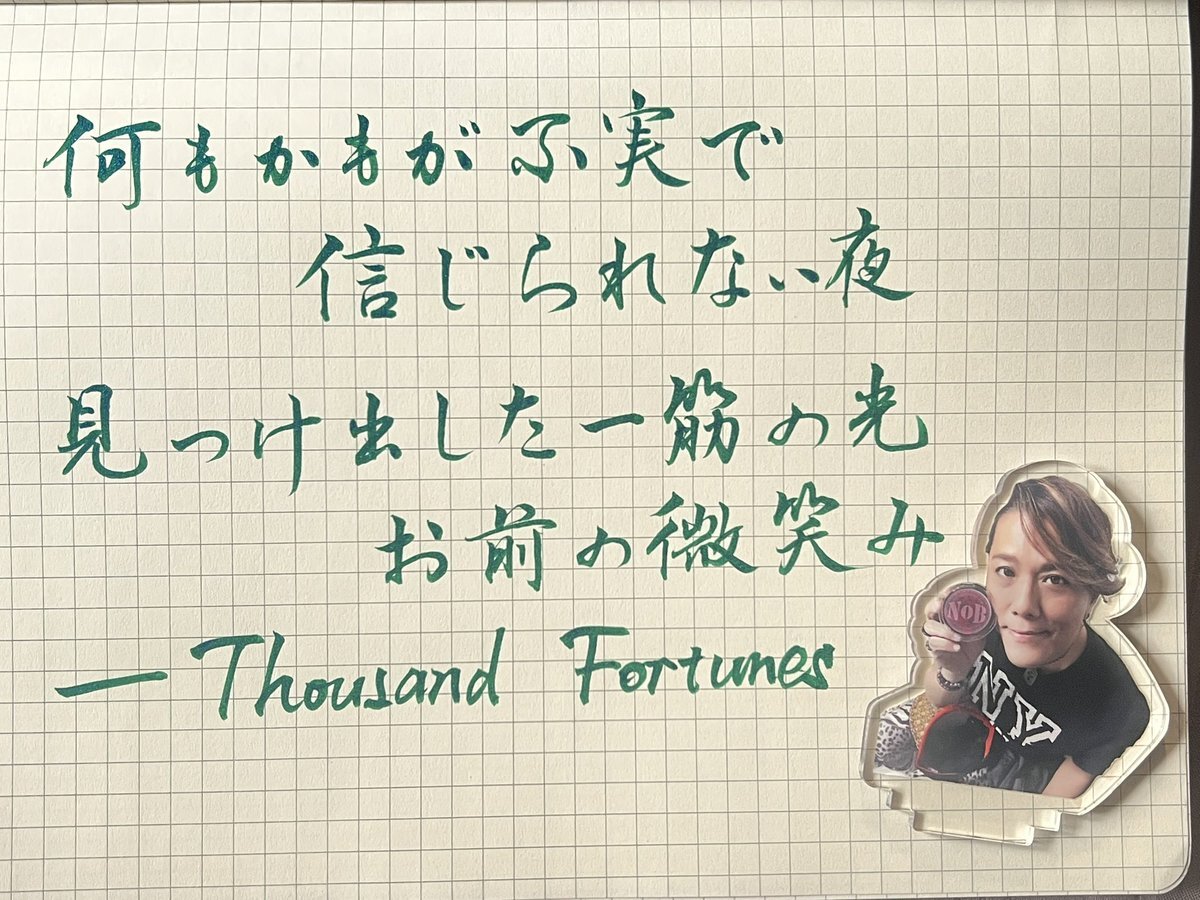 何もかもが不実で
信じられない夜
見つけ出した一筋の光
お前の微笑み
— Thousand Fortunes
NoB
NY